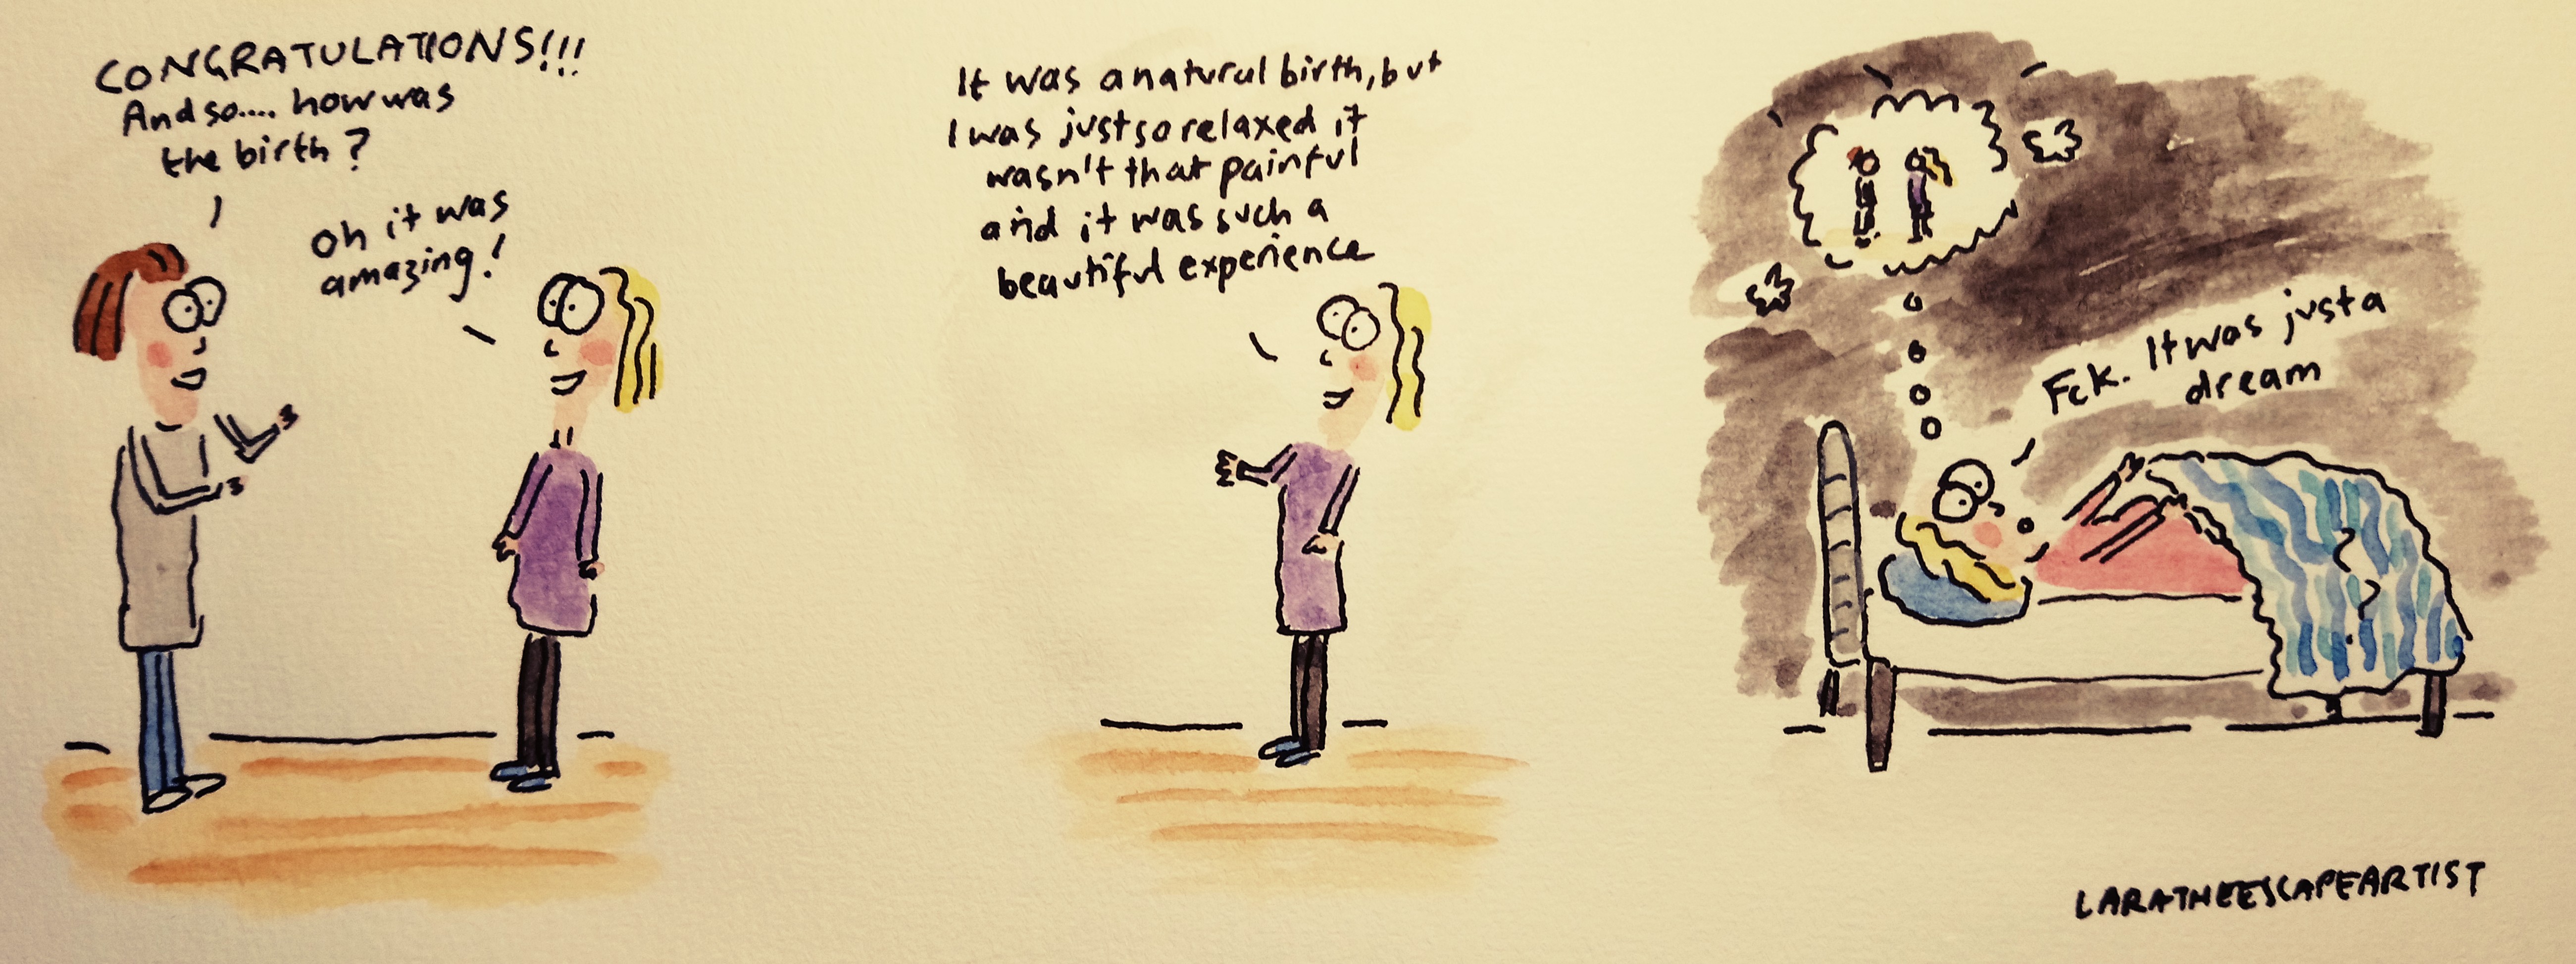 CONGRATULATIONS!!!
And so.... how was
the birth?
Oh it was
amazing!
It was a natural birth, but
I was just so relaxed it
wasn't that painful
and it was such a
beautiful experience
Fck. It was just a
dream
LARATHEESCAPEARTIST